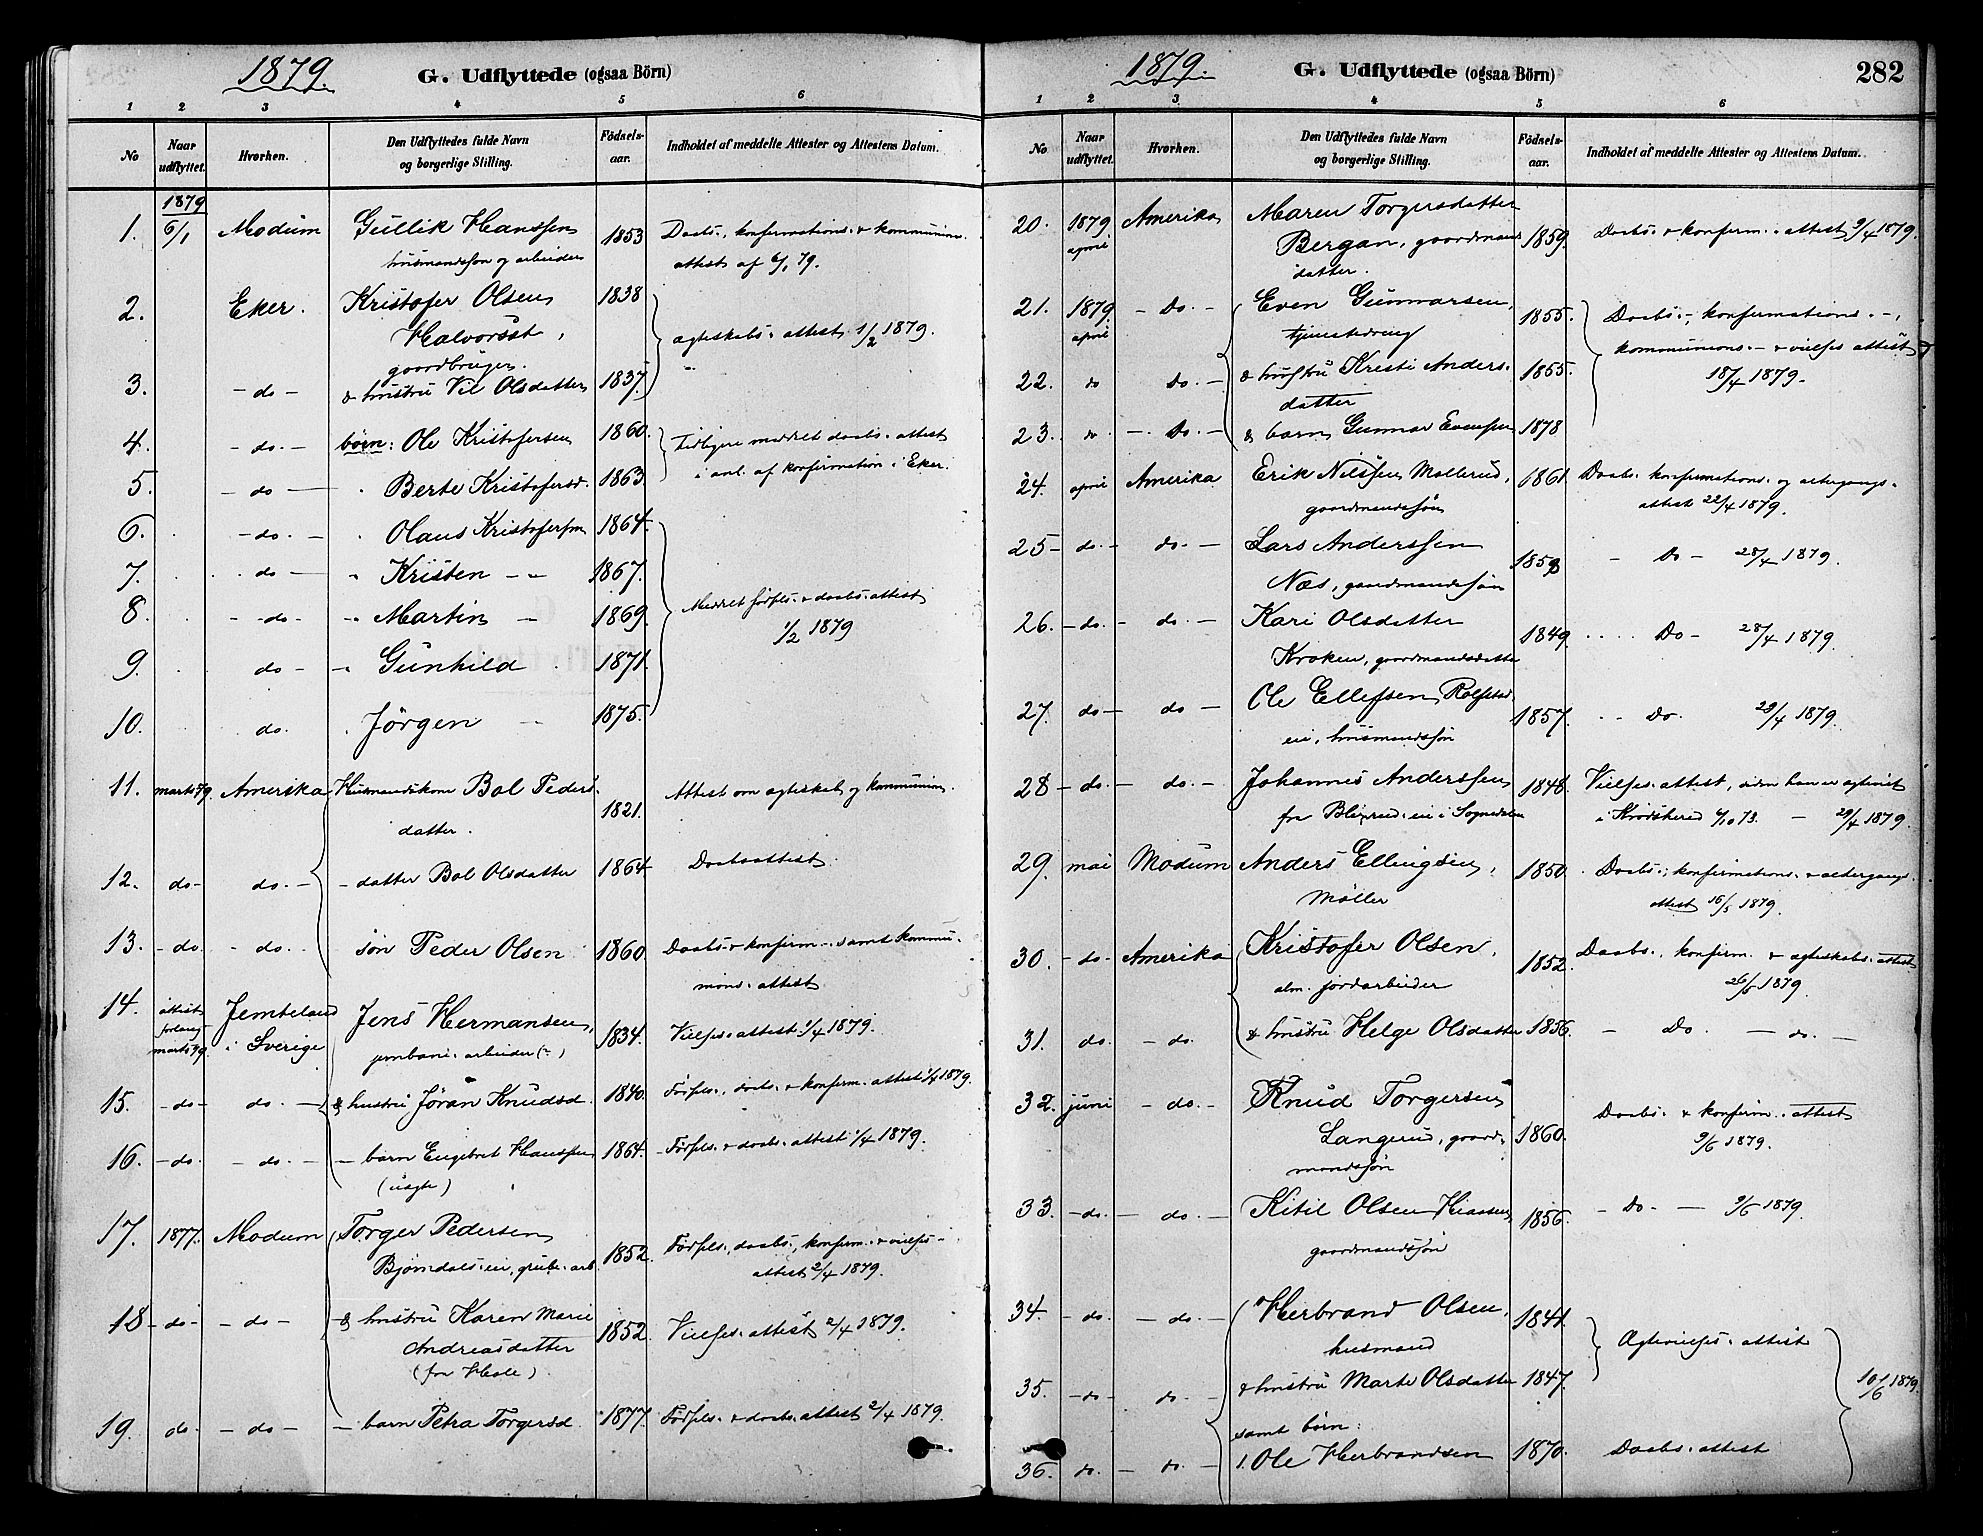 1879.
G. Udflyttede (ogsaa Börn)
1 2 3 4 5 6
No
Naar udflyttet.
Hvorhen.
Den Udflyttedes fulde Navn og borgerlige Stilling.
Födsels-aar.
Indholdet af meddelte Attester og Attestens Datum.
1879
1. 6/1 Modum Gullik Hanssen 1853 Daabs-, konfirmations- & kommunion-
husmandssøn og arbeider attest af 6/1 79.
2. Eker. Kristofer Olsen 1838
Halvorsst, ægteskabs-attest 1/2 1879.
gaardbruger.
3. - do - & hustru Vil Olsdatter 1837.
4. - do. - børn: Ole Kristofersen 1860. Tidligere meddelt daabs-attest
5. - do - Berte Kristofersd. 1863. i anl. af konfirmation i Eker.
6. - do. - Olaus Kristofersen 1864.
7. do - Kristen - 1867.
8. - do. - Martin - 1869. Meddelt fødsels- & daabs-attest
1/2 1879
9. do - Gunhild 1871.
10. do. Jörgen - 1875.
11. marts 79. Amerika Husmandskone Bol Peders- 1821. Attest om ægteskab og kommunion.
datter.
12. do - do. - - datter Bol Olsdatter 1864 Daabsattest.
13. - do - do. - søn Peder Olsen 1860. Daabs- & konfirm.- samt kommu-
nions-attest
14. attest forlangt marts 79. Jemteland i Sverige Jens Hermansen, 1834. Vielses-attest 1/4 1879.
jernbane-arbeider (-)
15. - do - do. - & hustru Jöran Knudsd. 1840. Fødsels-, daabs- & konfirm. attest 1/4 1879.
16. - do. - do. - - barn Engebret Hanssen 1864. - Fødsels- & daabs-attest 1/4 1879.
(uægte)
17. 1877. Modum Torger Pedersen 1852. Fødsels-, daabs-, konfirm.- & vielses-
Bjørndals-eie, grube-arb. attest 2/4 1879.
18 - do - - do - & hustru Karen Marie 1852. Vielses-attest 2/4 1879.
Andreasdatter
(fra Hole).
19. do - - do - - barn Petra Torgersd. 1877. Fødsels- & daabs-attest 2/4 1879.
1879.
G. Udflyttede (ogsaa Börn)
282
1 2 3 4 5 6
No
Naar udflyttet.
Hvorhen.
Den Udflyttedes fulde Navn og borgerlige Stilling.
Födsels-aar.
Indholdet af meddelte Attester og Attestens Datum.
20. 1879 april Amerika Maren Torgersdatter
Bergan, gaardmands- 1859. Daabs- & konfirm.-attest 9/4 1879.
datter.
21. 1879. april - Do. - Even Gunnarsen, 1855. Daabs-, konfirmations-,
tjenestedreng kommunions- & vielses attest
22. do Do. - & hustru Kristi Anders- 1865. 18/4 1879.
datter
23. do - Do. - & barn Gunnar Evensen 1878
24. april Amerika Erik Nilssen Mollerud, 1861. Daabs- konfirmations- og
gaardmandssøn attest 22/4 1879.
25 - do. - do. - Lars Anderssen 1859 - Do - 28/4 1879.
Næs, gaardmandssøn
26. - do. - do. - Kari Olsdatter 1849. Do - 28/4 1879.
Kroken, gaardmandsdatter
27. do - do - Ole Ellefsen Rolfstad- 1857. Do. 29/4 1879.
eie, husmandssøn
28 - do. - do. - Johannes Anderssen 1848. Vielses-attest, siden han er ægteviet
fra eie i Sognedalen i Krødsherred 6/10 73. - 29/4 1879.
29. mai Modum Anders Ellingsen, 1850. Daabs-, konfirmations- &
Møller attest 16/5 1879.
30. - do - Amerika Kristofer Olsen, 1852. Daabs-, konfirm. & ægteskabs-attest
alm. jordarbeider 26/5 1879.
31. do. - do. & hustru Helge Olsdatter 1856. - Do - do. -
32. juni - do. - Knud Torgersen
Langerud, gaard- 1860. Daabs- & konfirm.-attest
mandssøn 9/6 1879.
33. - do. - do. - Kitil Olsen 1856. - Do - 9/6 1879.
gaardmandssøn
34. - do. - do. - Herbrand Olsen, 1841.
husmand Ægtevielses-attest
35. - do - do. & hustru Marte Olsdatter 1847. 10/6 1879.
samt børn:
36. do. - do. - 1. Ole Herbrandsen 1870. Daabs-attest